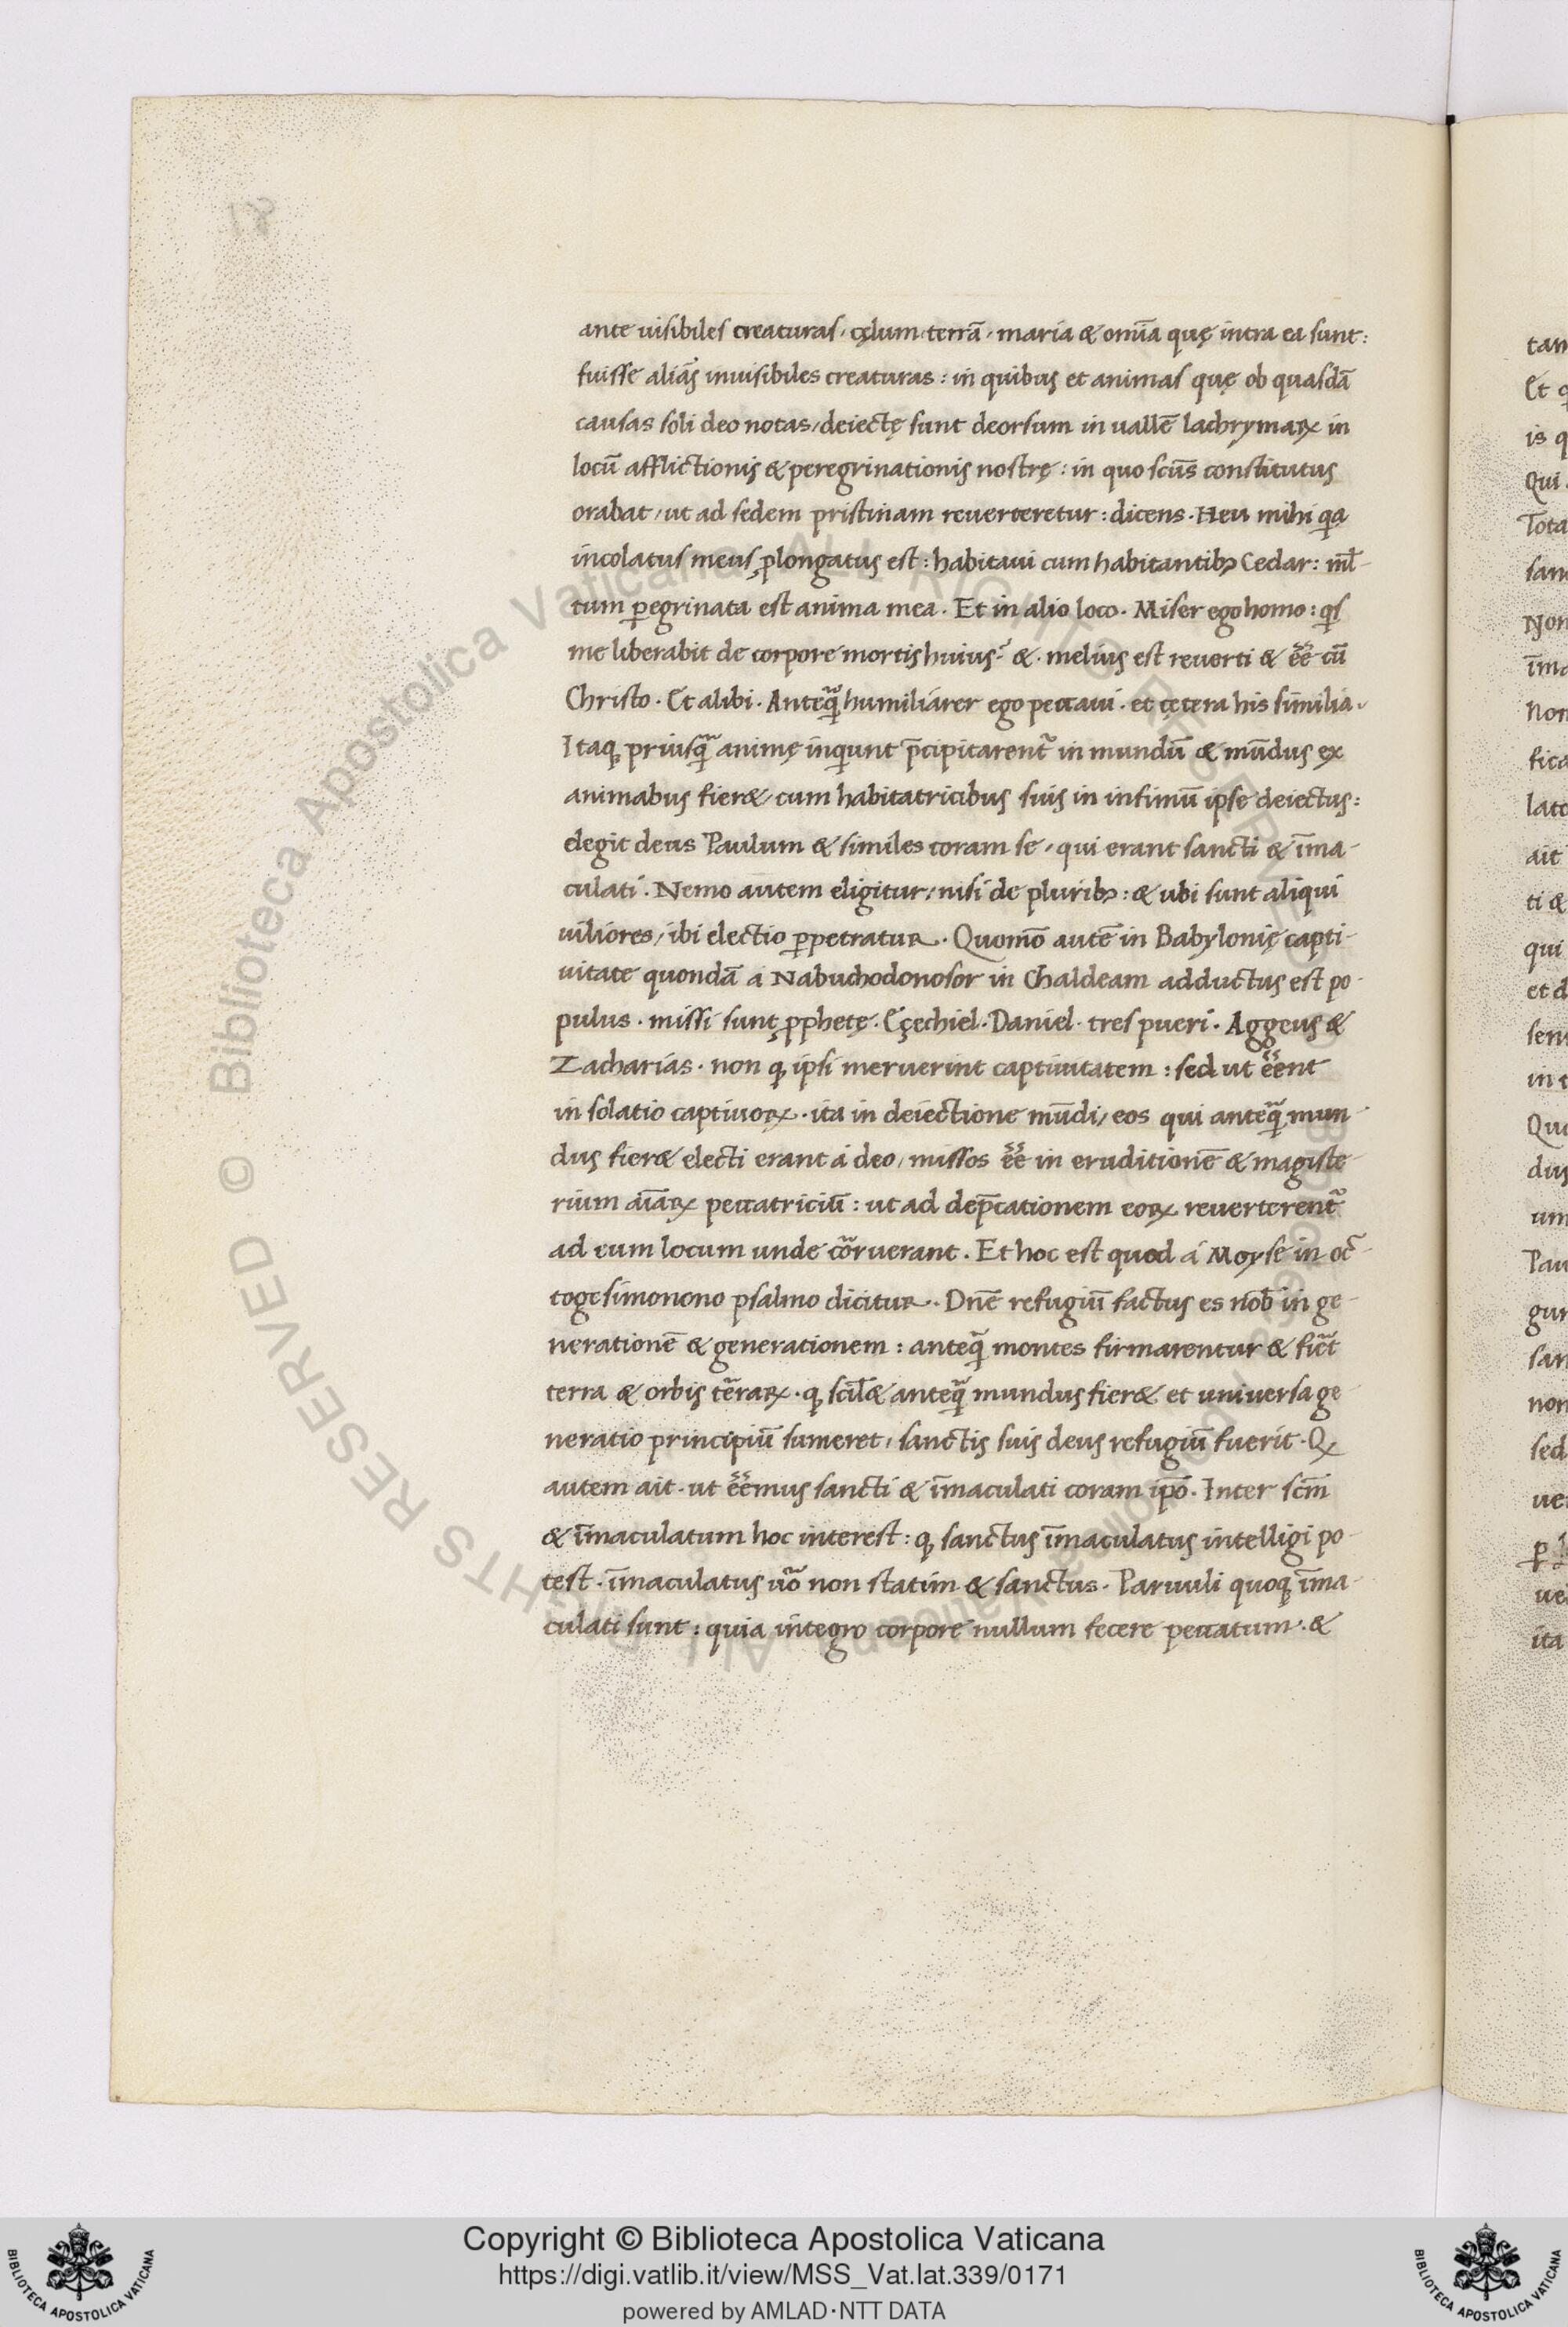 ante uisibiles creaturas, cęlum, terrā, maria & om̄ia quę intra ea sunt:
fuisse aliās inuisibiles creaturas: in quibus et animas quę ob quasdā
causas soli deo notas, deiectę sunt deorsum in uallē lachrymaꝝ in
locū afflictionis & peregrinationis nostrę: in quo sc̄us constitutus
orabat, ut ad sedem pristinam reuerteretur: dicens. Heu mihi qa
incolatus meus ꝓlongatus est: habitaui cum habitantibꝫ Cedar: ml̄-
tum ꝑegrinata est anima mea. Et in alio loco. Miser ego homo: qs
me liberabit de corpore mortis huius? &. melius est reuerti & eē cū
Christo. Et alibi. Anteq̄ humiliárer ego peccaui. et cętera his similia.
Itaqꝫ priusq̄ animę inqiunt p̄cipitarent᷑ in mundū & mūdus ex
animabus fier&, cum habitatricibus suis in infimū ipse deiectus:
elegit deus Paulum & similes coram se, qui erant sancti & īma-
culati. Nemo autem eligitur, nisi de pluribꝫ: & ubi sunt aliqui
uiliores, ibi electio ꝑpetratur. Quomō autē in Babylonię capti-
uitate quondā a Nabuchodonosor in Chaldeam adductus est po-
pulus. missi sunt ꝓphetę. Eçechiel. Daniel. tres pueri. Aggeus &
Zacharias. non qꝫ ipsi meruerint captiuitatem: sed ut eēnt
in solatio captiuoꝝ. ita in deiectione mūdi, eos qui anteq̄ mun-
dus fier& electi erant á deo, missos eē in eruditionē & magiste-
rium aīaꝝ peccatriciū: ut ad dep̄cationem eoꝝ reuerterent᷑
ad eum locum unde cōruerant. Et hoc est quod á Moyse in oc-
togesimonono psalmo dicitur. Dn̄e refugiū factus es nob̄ in ge-
nerationē & generationem: anteq̄ montes firmarentur & fiēt
terra & orbis tēraꝝ. qꝫ scil& anteq̄ mundus fier& et uniuersa ge-
neratio principiū sumeret, sanctis suis deus refugiū fuerit. Qꝫ
autem ait. ut eēmus sancti & īmaculati coram ipō. Inter sc̄m
& īmaculatum hoc interest: qꝫ sanctus īmaculatus intelligi po-
test. īmaculatus uō non statim & sanctus. Paruuli quoqꝫ īma-
culati sunt: quia integro corpore nullum fecere peccatum. &
Copyright © Biblioteca Apostolica Vaticana
https://digi.vatlib.it/view/MSS_Vat.lat.339/0171
powered by AMLAD·NTT DATA